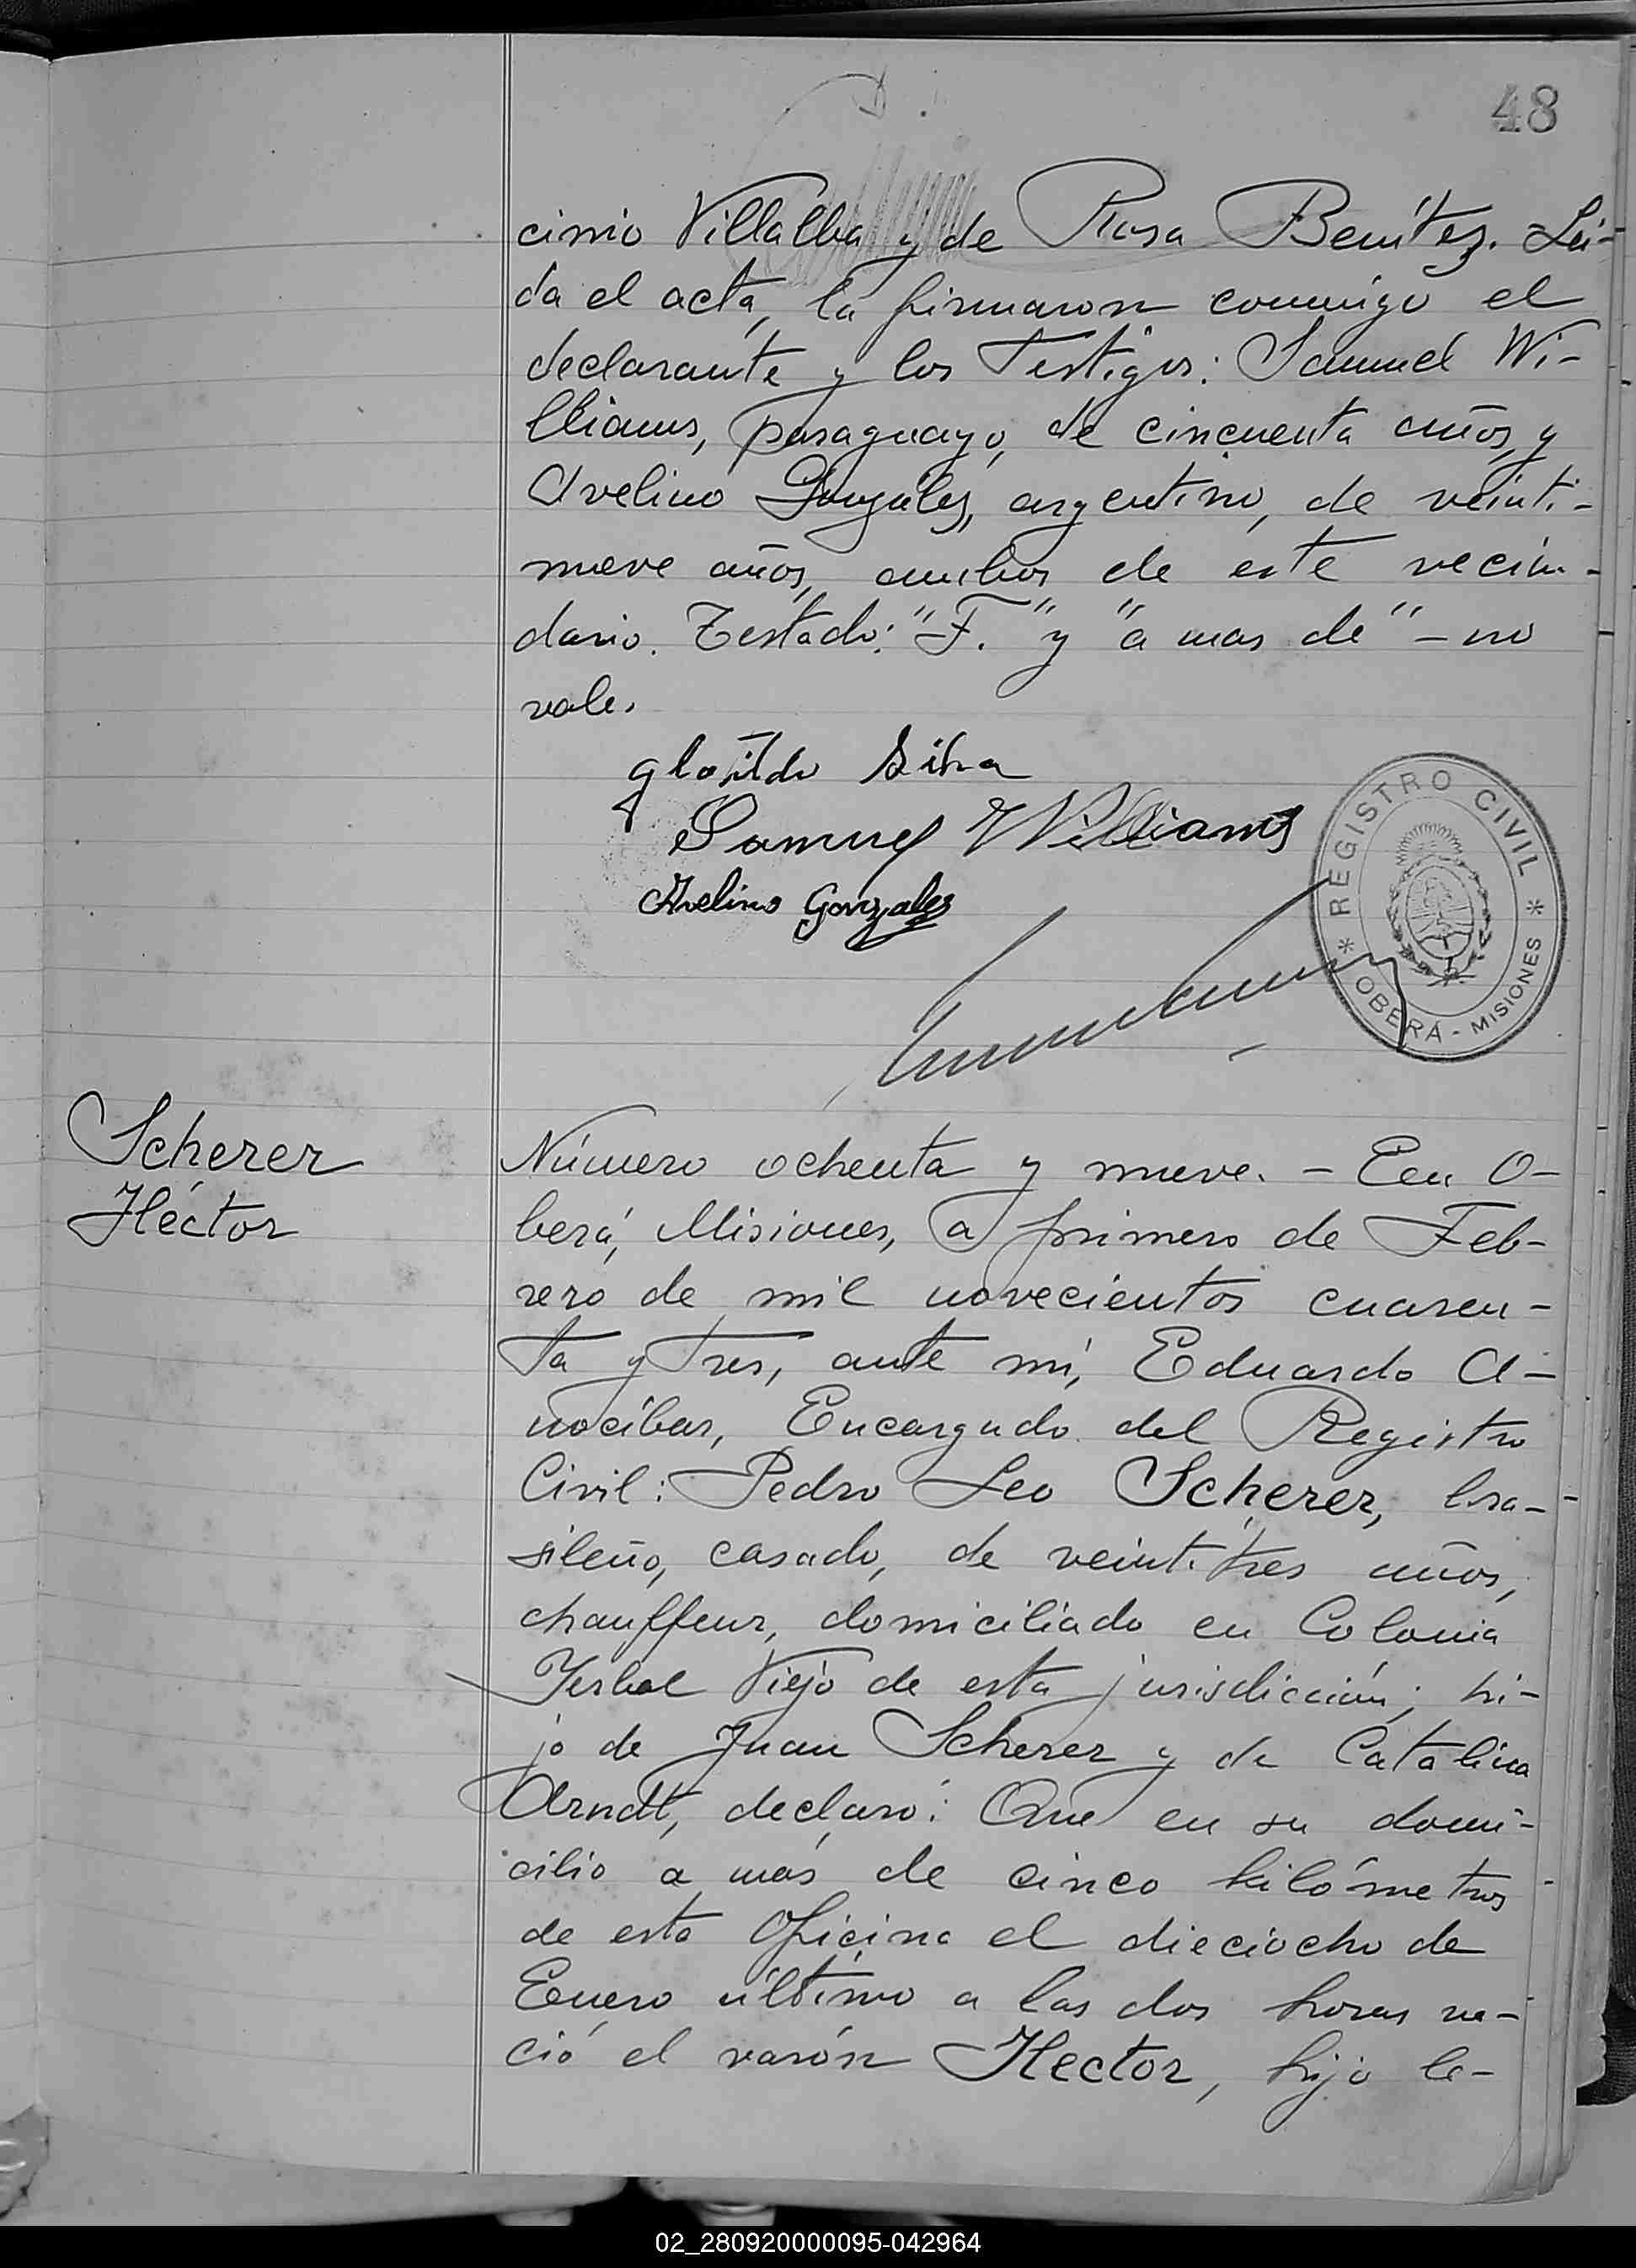 48
cinio Villalba y de Rosa Benítez. Leí-
da el acta, la firmaron conmigo el
declarante y los testigos: Samuel Wi-
lliams, paraguayo, de cincuenta años, y
Avelino González, argentino, de veinti-
nueve años, ambos de este vecin-
dario. Testado: "F." y "a mas de" - no
vale.
Silva
Samuel Williams
Avelino Gonzalez
* REGISTRO CIVIL *
OBERÁ - MISIONES
Scherer
Héctor
Número ochenta y nueve. - En O-
berá, Misiones, a primero de Feb-
rero de mil novecientos cuaren-
ta y tres, ante mí, Eduardo A-
nocíbar, Encargado del Registro
Civil: Pedro Leo Scherer, bra-
sileño, casado, de veintitres años,
chauffeur, domiciliado en Colonia
Yerbal Viejo de esta jurisdicción; hi-
jo de Juan Scherer y de Catalina
Arndt, declaró: Que en su domi-
cilio a más de cinco kilómetros
de esta Oficina el dieciocho de
Enero último a las dos horas na-
ció el varón Hector, hijo le-
02_280920000095-042964